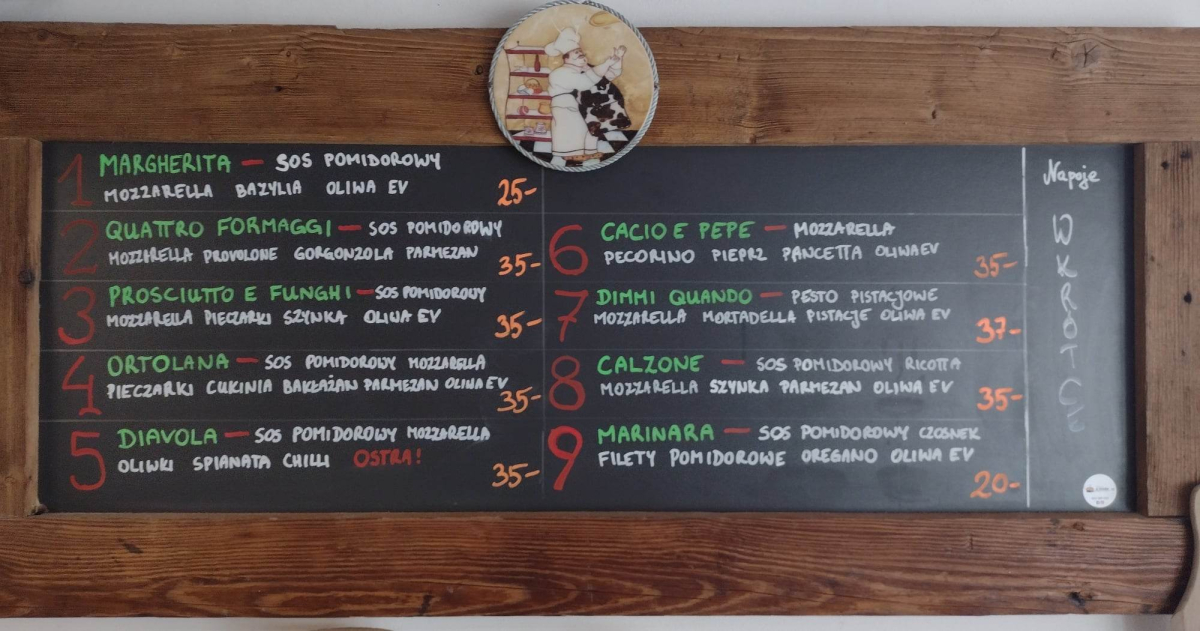 1 MARGHERITA — SOS POMIDOROWY
MOZZARELLA BAZYLIA OLIWA EV 25-
2 QUATTRO FORMAGGI — SOS POMIDOROWY
MOZZARELLA PROVOLONE GORGONZOLA PARMEZAN 35-
3 PROSCIUTTO E FUNGHI — SOS POMIDOROWY
MOZZARELLA PIECZARKI SZYNKA OLIWA EV 35-
4 ORTOLANA — SOS POMIDOROWY MOZZARELLA
PIECZARKI CUKINIA BAKŁAŻAN PARMEZAN OLIWA EV 35-
5 DIAVOLA — SOS POMIDOROWY MOZZARELLA
OLIWKI SPIANATA CHILLI OSTRA! 35-
6 CACIO E PEPE — MOZZARELLA
PECORINO PIEPRZ PANCETTA OLIWA EV 35-
7 DIMMI QUANDO — PESTO PISTACJOWE
MOZZARELLA MORTADELLA PISTACJE OLIWA EV 37-
8 CALZONE — SOS POMIDOROWY RICOTTA
MOZZARELLA SZYNKA PARMEZAN OLIWA EV 35-
9 MARINARA — SOS POMIDOROWY CZOSNEK
FILETY POMIDOROWE OREGANO OLIWA EV 20-
Napoje
WKRÓTCE